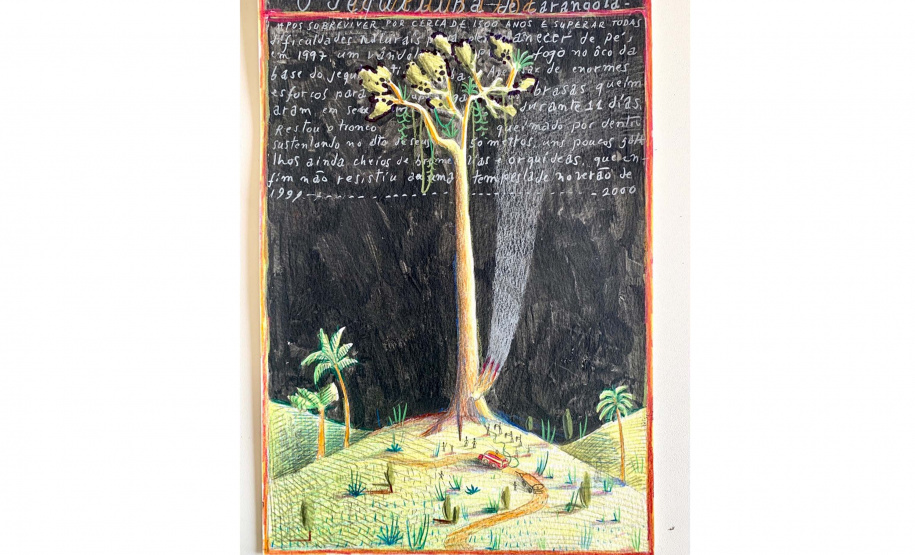 O Jequitibá de Carangola-
APÓS SOBREVIVER POR CERCA DE 1500 ANOS E SUPERAR TODAS
dificuldades naturais para permanecer de pé,
em 1997, um vândalo fogo no ôco da
base do jequitibá. Apesar de enormes
esforços para brasas queim
aram em durante 11 dias.
Restou o tronco queimado por dentro
sustentando no alto de seus 50 metros, uns poucos ga
lhos ainda cheios de bromélias e orquídeas, que en-
fim não resistiu a uma tempestade no verão de
1999 - 2000